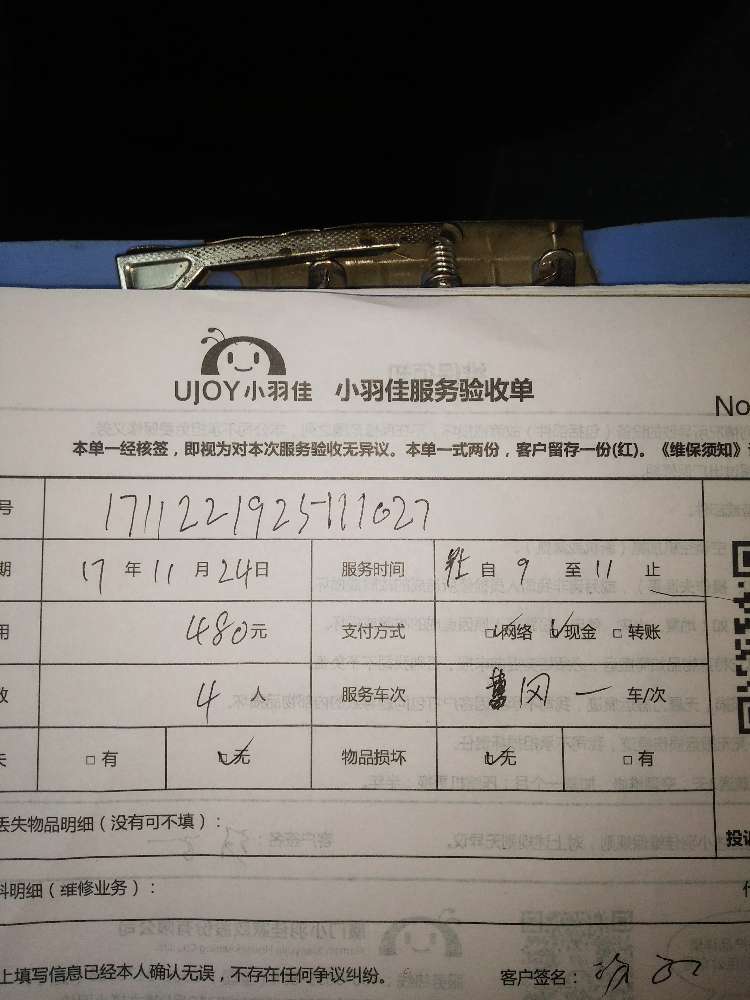 UJOY小羽佳 小羽佳服务验收单
No
本单一经核签，即视为对本次服务验收无异议。本单一式两份，客户留存一份(红)。《维保须知》
号 1711221925111027
期 17 年 11 月 24 日 服务时间 自 9 至 11 止
用 480元 支付方式 □网络 □现金 □转账
数 4 人 服务车次 一 车/次
失 □有 □无 物品损坏 □无 □有
丢失物品明细（没有可不填）：
投诉
料明细（维修业务）：
上填写信息已经本人确认无误，不存在任何争议纠纷。 客户签名：